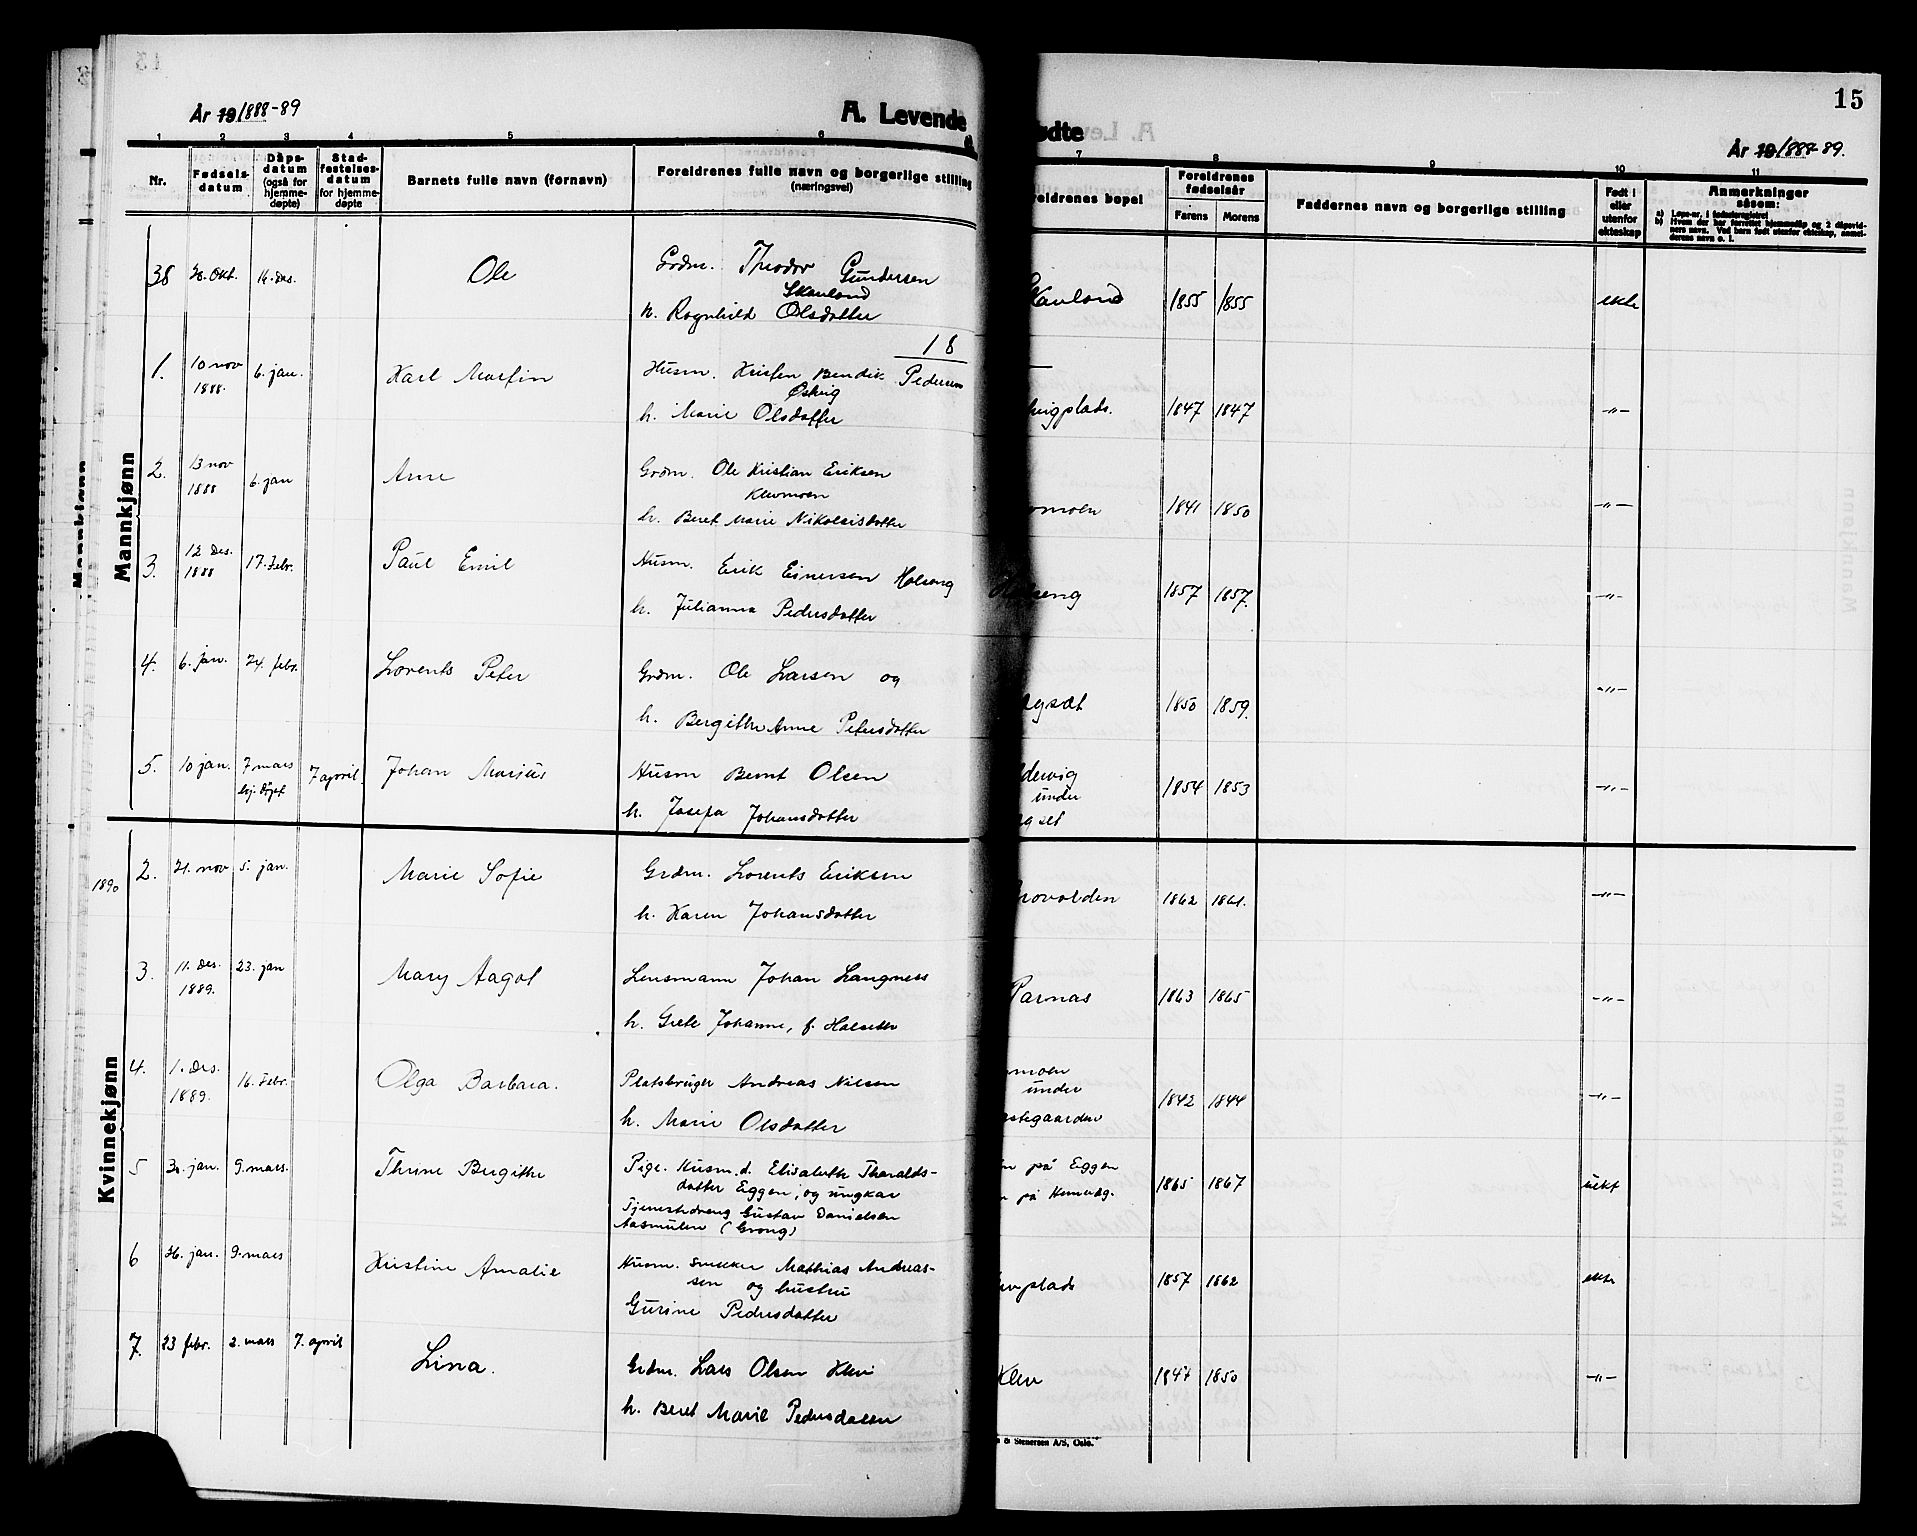 År 19 1888-89
A. Levende
ødte
15
År 19 1888-89.
1 2 3 4 5 6 7 8 9 10 11
Nr.
Fødsels-
datum
Dåps-
datum
(også for
hjemme-
døpte)
Stad-
festelses-
datum
for hjemme-
døpte
Barnets fulle navn (fornavn)
Foreldrenes fulle navn og borgerlige stilling
(næringsvei)
reldrenes bopel
Foreldrenes
fødselsår
Farens Morens
Faddernes navn og borgerlige stilling
Født i
eller
utenfor
ekteskap
Anmerkninger
såsom:
a) Løpe-nr. i fødselsregistret
Mannkjønn
38 14. Des. Ole Grdm. Theodor Gundersen
Skavland
h. Ragnhild Olsdatter
kavland 1855 1855 ekte
18
1. 10 nov 1888. 6. jan. Karl Martin Husm. Kristen Bendik Pedersen
Østvig
h. Marie Olsdatter
vigplads. 1847 1847 -"-
2. 13 nov 1888 6. jan Arne Grdm. Ole Kristian Eriksen
Klevmoen
h. Beret Marie Nikolaisdatter
moen 1841 1850 -"-
3. 12 Des. 1888 17. Febr. Paul Emil Husm. Erik Einersen Halseng
h. Julianna Pedersdatter
eng 1857 1857. -"-
4. 6. jan. 24. febr. Lorents Peter Grdm. Ole Larsen og
h. Bergithe Anne Petersdatter
gset 1850 1859. -"-
5. 10 jan. 7 mars 7 april Johan Marius Husm Bernt Olsen
h. Josefa Johansdatter
dervig
under
gset
1854 1853 -"-
Kvinnekjønn
1890 2. 21. nov 5. jan. Marie Sofie Grdm. Lorents Eriksen
h. Karen Johansdatter
rovolden 1862 1861. -"-
3. 11. Des. 1889. 23. jan Mary Aagot Lensmann Johan Langness
h. Grete Johanne, f. Halseth
Parnas 1863 1865 -"-
4. 1. Des. 1889. 16. Febr. Olga Barbara. Platsbruger Andreas Nilsen
h. Marie Olsdatter
moen
under
estegaarden
1842 1844 -"-
5 30. jan. 9. mars. Thrine Birgithe Pige. Husm. d. Elisabeth Tharalds-
datter Eggen, og ungkar
Tjenestedreng Gustav Danielsen
Aasmulen (Grong)
n på Eggen
1865 1867 uekt
6 26. jan. 9. mars Kristine Amalie Husm. snekker Mathias Andreas-
sen og hustru
Gurine Pedersdatter
vplads 1857 1862 ekte
7. 23 febr. 2. mars 7. april Lina. Grdm. Lars Olsen Klev
h. Beret Marie Pedersdatter
Klev 1847 1850 -"-
& Stenersen A/S, Oslo.